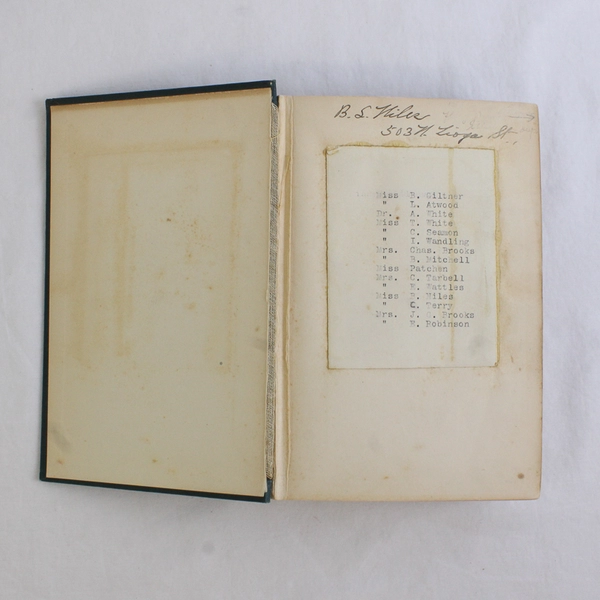 B. S. Niles
503 N. Tioga St.,
Miss B. Giltner
" L. Atwood
Dr. A. White
Miss T. White
" C. Seamon
" I. Wandling
Mrs. Chas. Brooks
" B. Mitchell
Miss Patchen
Mrs. C. Tarbell
" E. Rattles
Miss B. Niles
" C. Terry
Mrs. J. C. Brooks
" E. Robinson